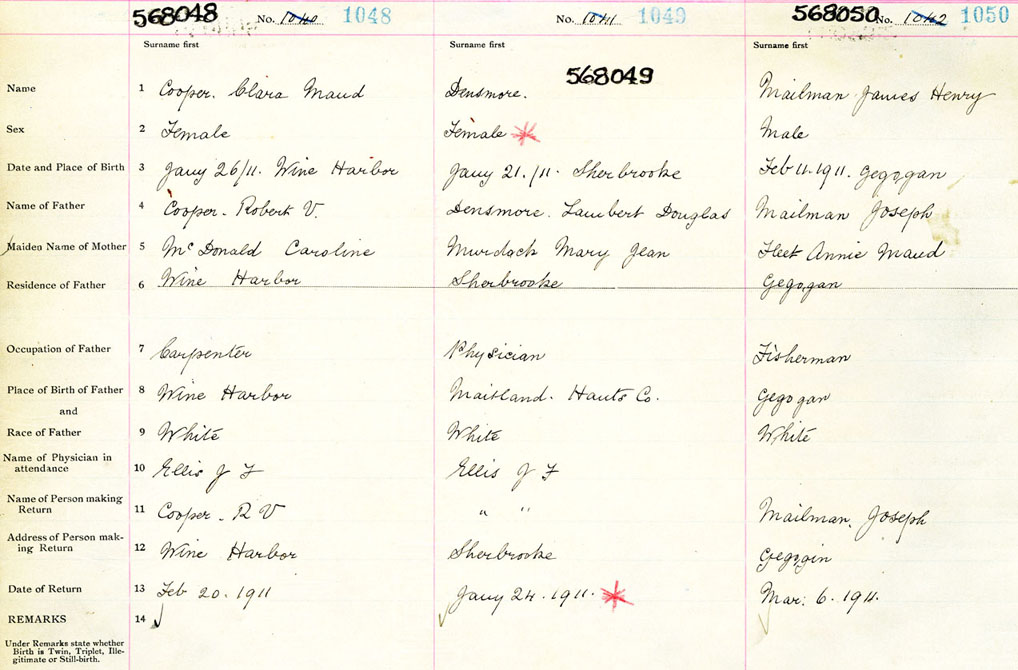 568048 No. 1040 1048 No. 1041 1049 568050 No. 1042 1050
Surname first Surname first Surname first
568049
Name 1 Cooper. Clara Maud Densmore. Mailman James Henry
Sex 2 Female Female Male
Date and Place of Birth 3 Jany 26/11. Wine Harbor Jany 21./11. Sherbrooke Feb 11.1911. Gegogan
Name of Father 4 Cooper. Robert V. Densmore. Lambert Douglas Mailman Joseph
Maiden Name of Mother 5 McDonald Caroline Murdock Mary Jean Fleet Annie Maud
Residence of Father 6 Wine Harbor Sherbrooke Gegogan
Occupation of Father 7 Carpenter Physician Fisherman
Place of Birth of Father 8 Wine Harbor Maitland. Hants Co. Gegogan
and
Race of Father 9 White White White
Name of Physician in
attendance 10 Ellis J F Ellis J F
Name of Person making
Return 11 Cooper. R V " " Mailman, Joseph
Address of Person mak-
ing Return 12 Wine Harbor Sherbrooke Gegogin
Date of Return 13 Feb 20. 1911 Jany 24. 1911. Mar: 6. 1911.
REMARKS 14
Under Remarks state whether
Birth is Twin, Triplet, Ille-
gitimate or Still-birth.